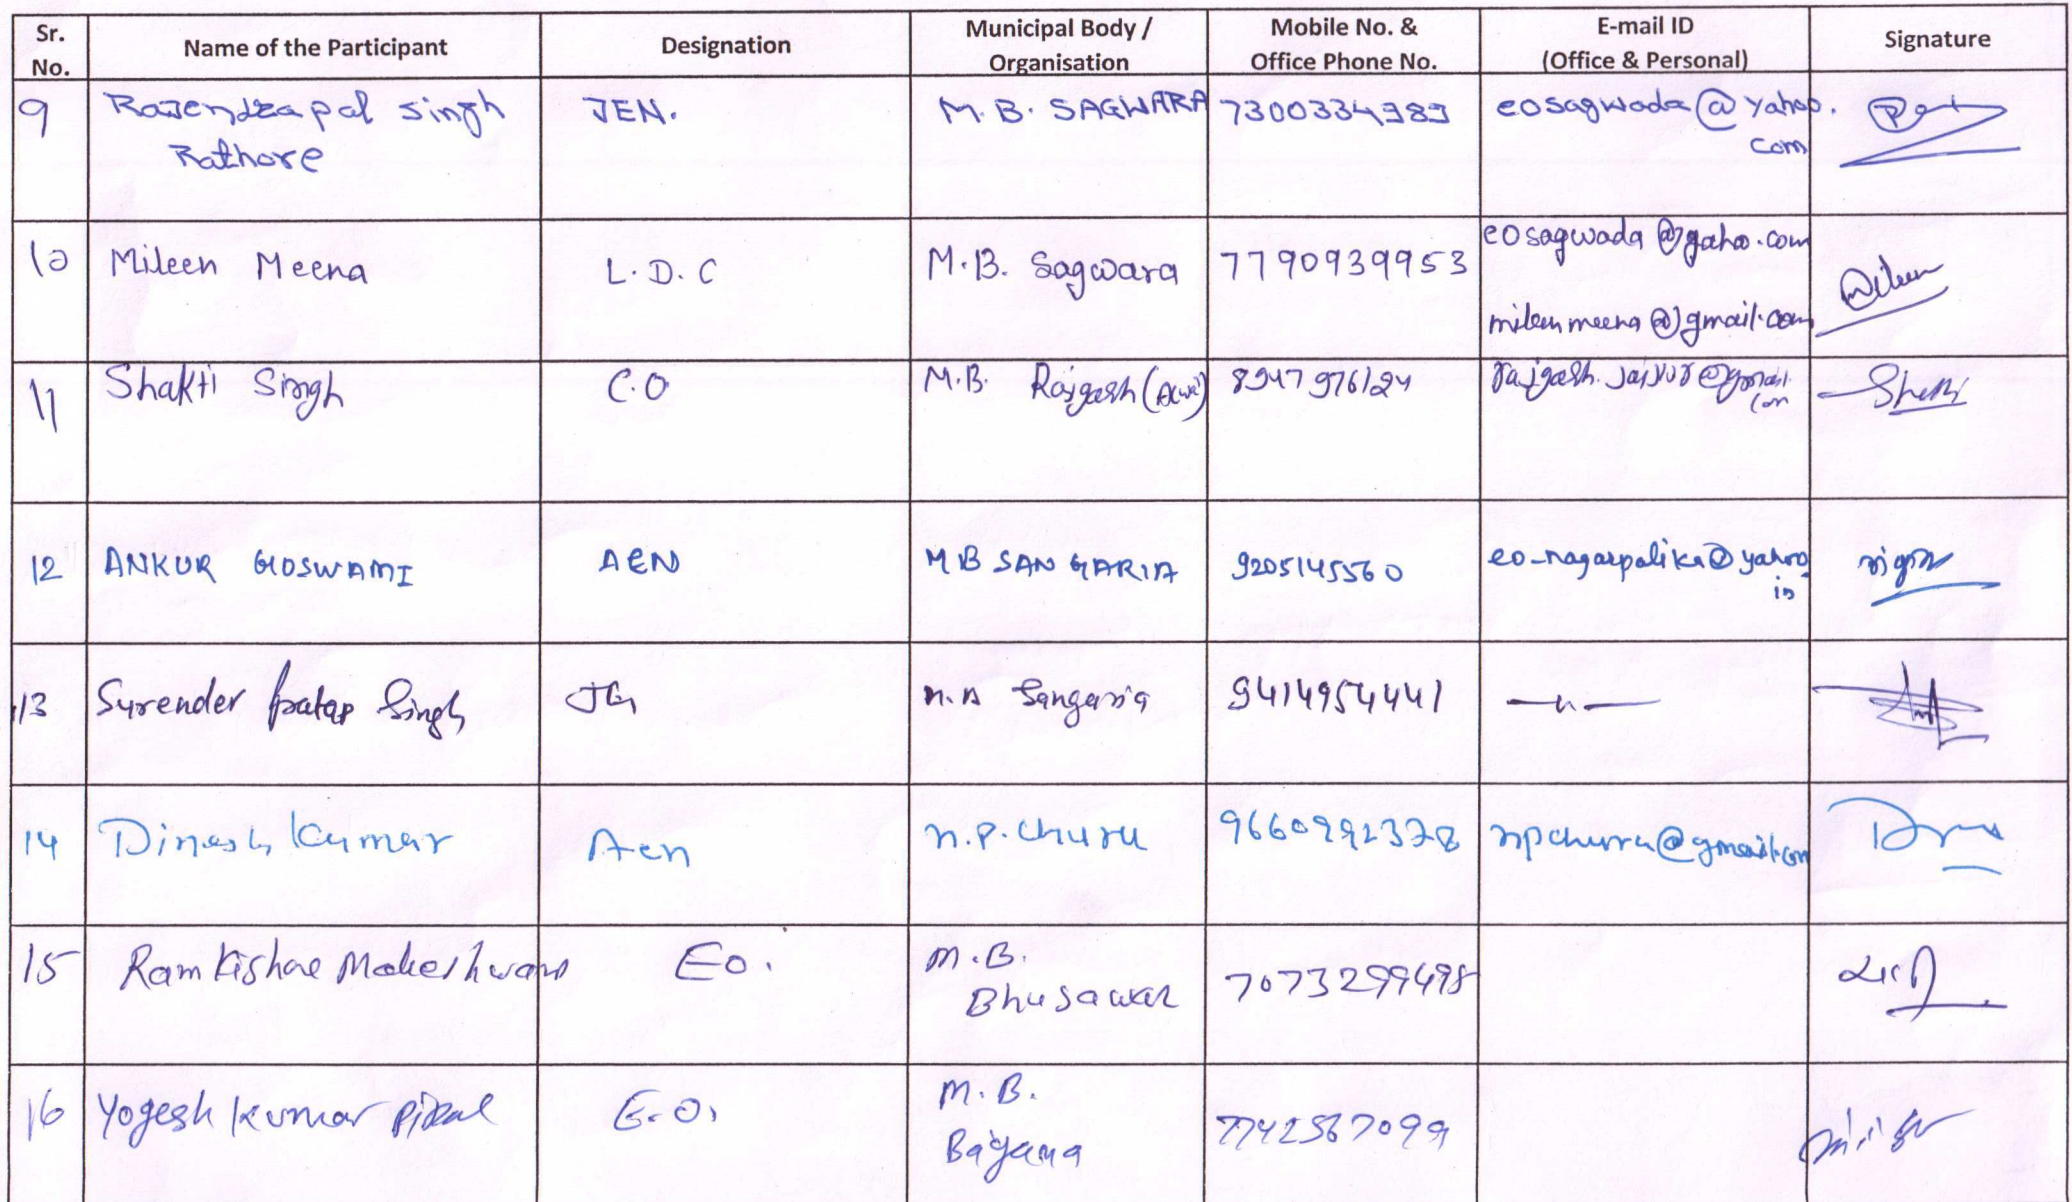 Sr. No.
Name of the Participant
Designation
Municipal Body / Organisation
Mobile No. & Office Phone No.
E-mail ID (Office & Personal)
Signature
9 Rajendrapal Singh JEN. M.B. SAGWARA 7300334989 eosagwada@yahoo.
Rathore com
10 Mileen Meena L.D.C M.B. Sagwara 7790939953 eosagwada@yahoo.com
mileenmeena@gmail.com Mileen
11 Shakti Singh C.O M.B. Rajgarh 8947976124
12 ANKUR GOSWAMI AEN M B SANGARIA 9205145560 eo_nagarpalika@yahoo
in
13 Surender Pratap Singh Sangaria 9414954441 —"—
14 Dinesh Kumar Aen N.P. Churu 9660992378 npchuru@gmail.com
15 Ram Kishore Maheshwari EO. M.B.
Bhusawar 7073299498
16 Yogesh Kumar Pipal E.O. M.B.
Bayana 7742567099